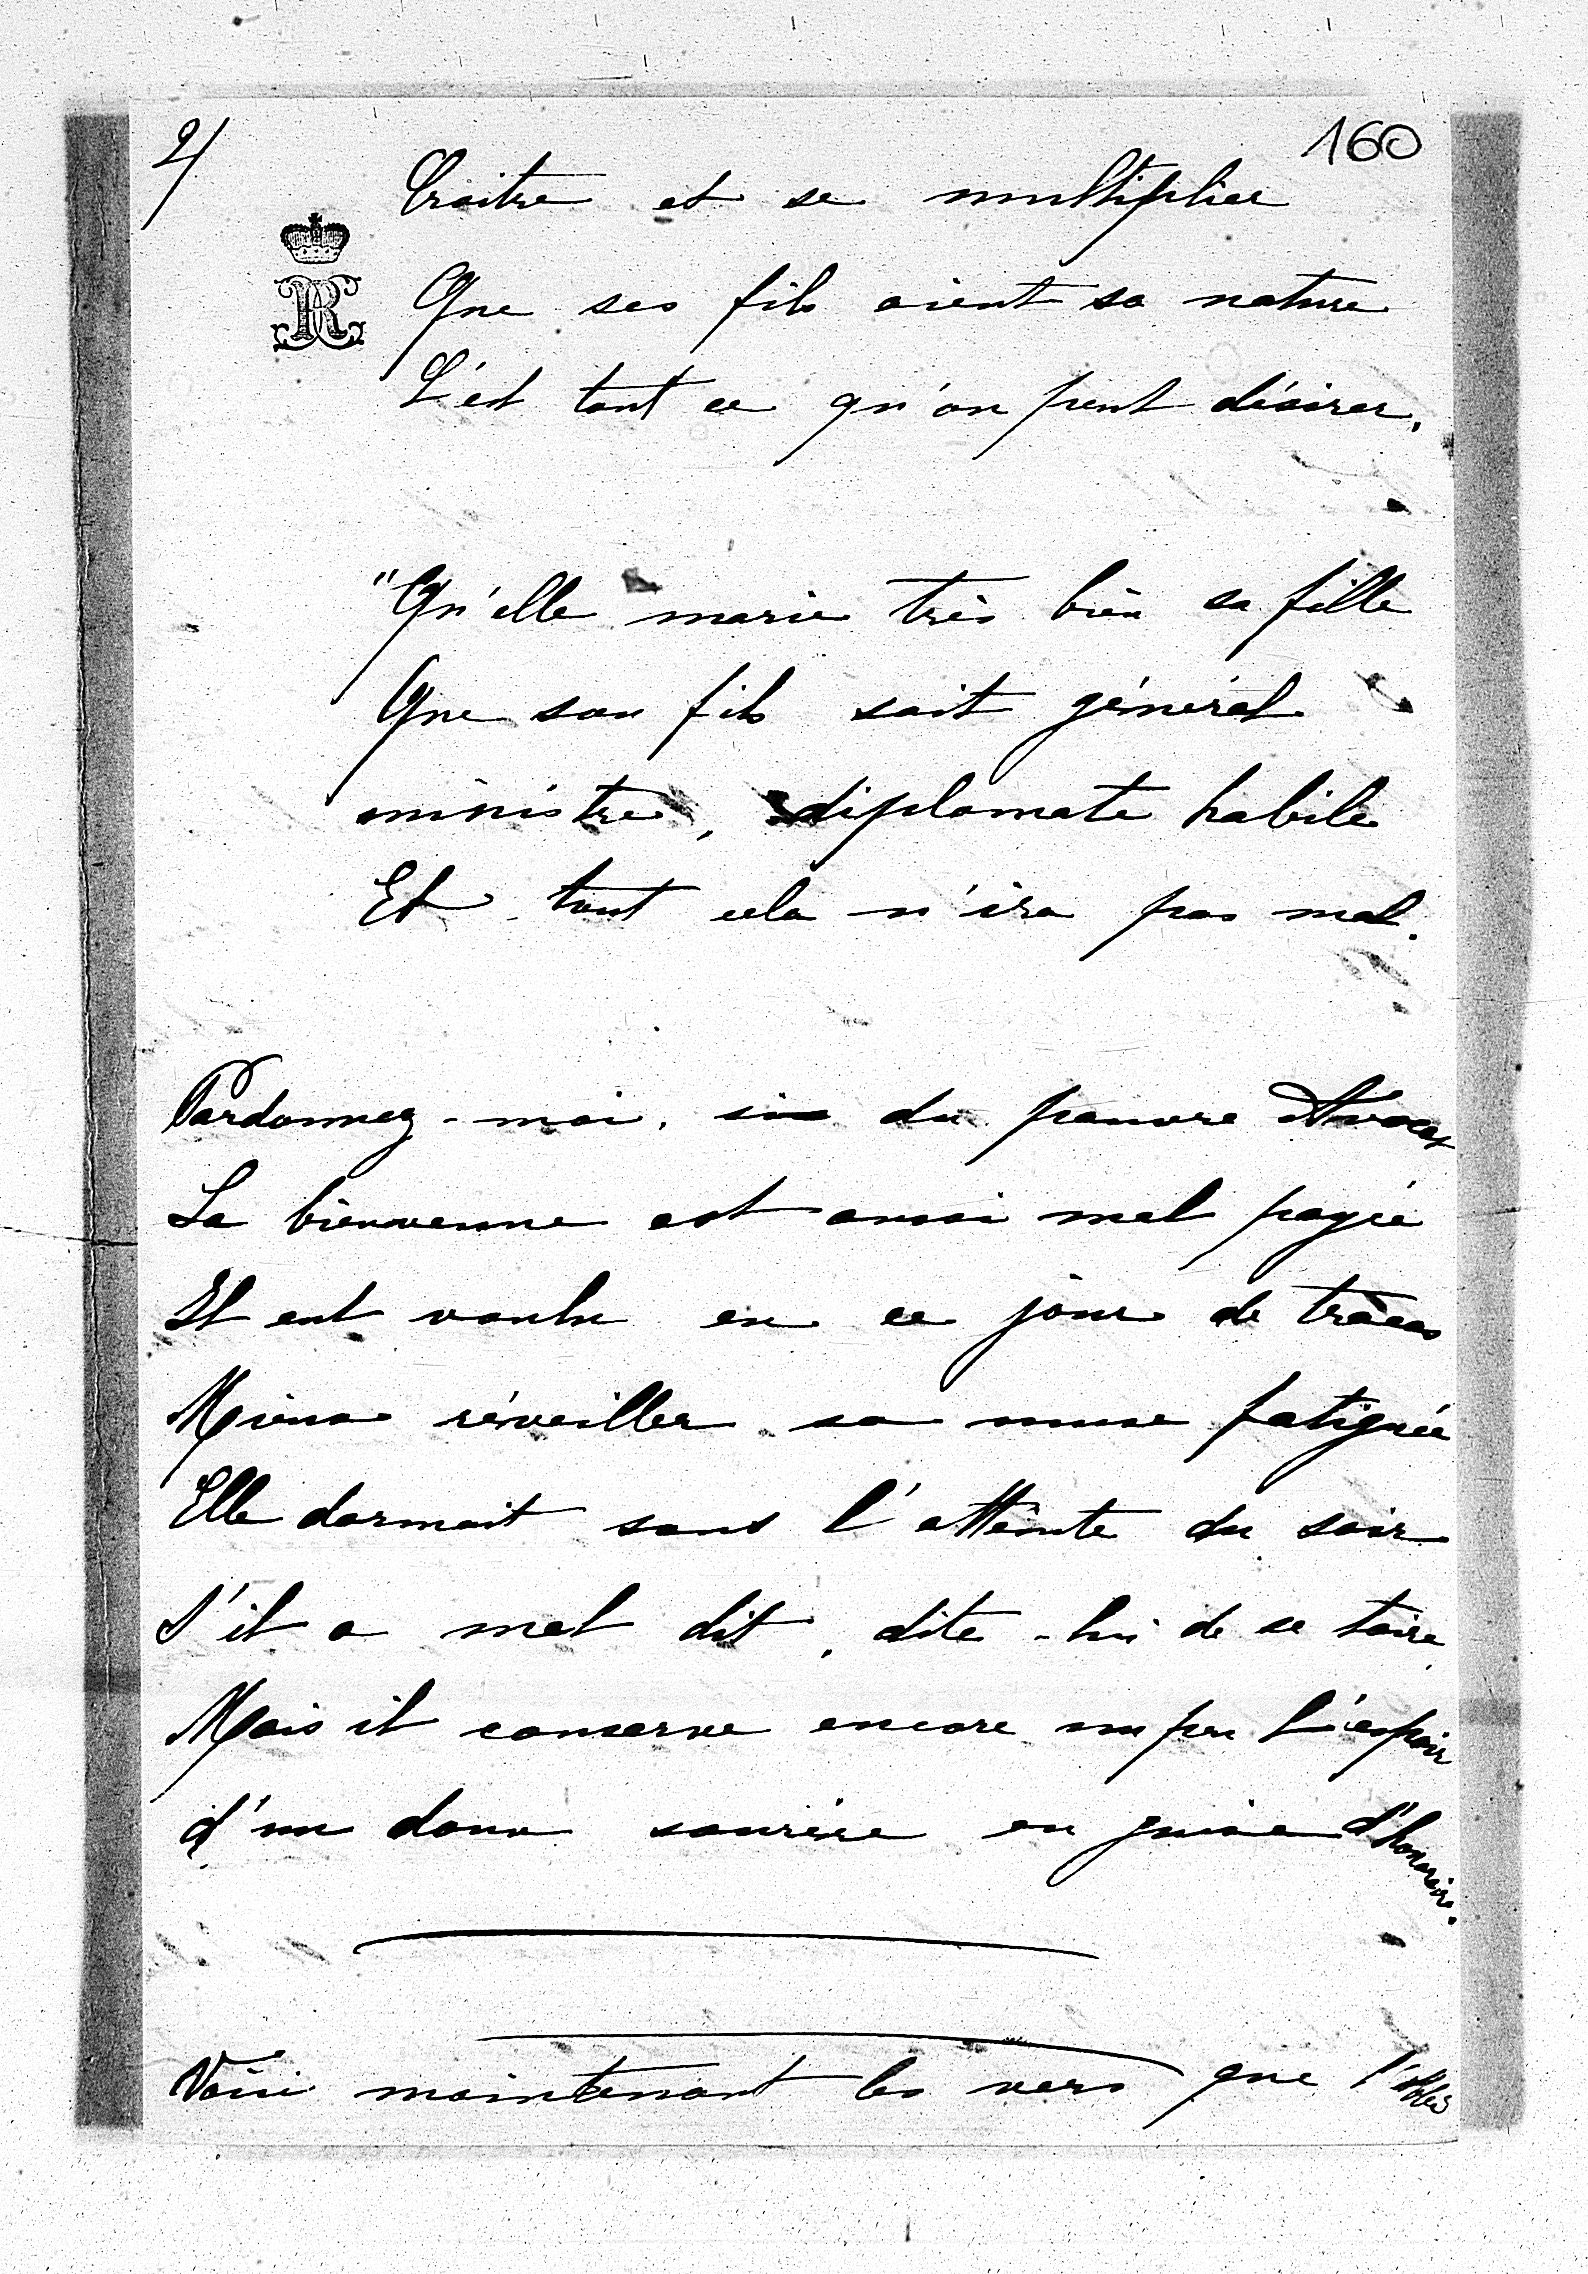 2/
160
Croitre et se multiplier
Que ses fils aient sa nature
C'est tout ce qu'on peut désirer.
"Qu'elle marie très bien sa fille
Que son fils soit général
ministre, diplomate habile
Et tout cela n'ira pas mal.
Pardonnez-moi, si du pauvre Avocat
La bienvenue est aussi mal payée
Il eut voulu en ce jour de tracas
Mieux réveiller sa muse fatiguée
Elle dormait sans l'attente du soir
S'il a mal dit, dite-lui de se taire
Mais il conserve encore un peu l'espoir
d'un doux sourire en guise d'honoraire.
Voici maintenant les vers que l'abbé